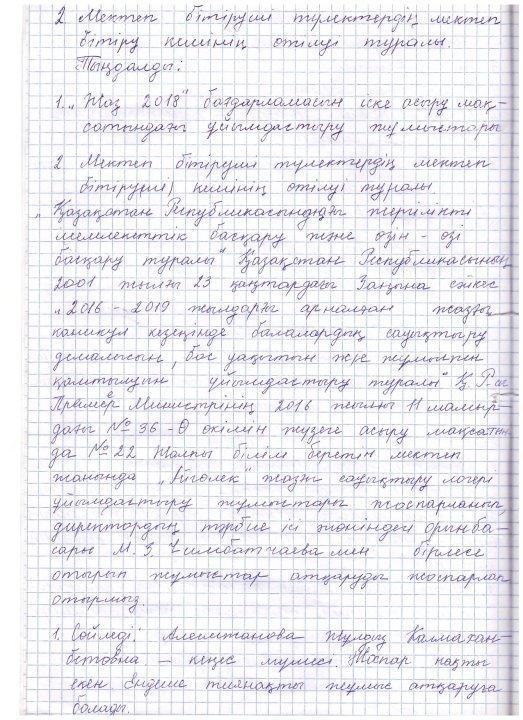 2 Мектеп бітіруші түлектердің мектеп
бітіру кешінің өтілуі туралы.
Тыңдалды:
1. „Жаз 2018" бағдарламасын іске асыру мақ-
сатындағы ұйымдастыру жұмыстары
2 Мектеп бітіруші түлектердің мектеп
бітіруші) кешінің өтілуі туралы.
„Қазақстан Республикасындағы жергілікті
мемлекеттік басқару және өзін-өзі
басқару туралы" Қазақстан Республикасының
2001 жылғы 23 қаңтардағы Заңына сәйкес
„2016-2019 жылдарға арналған жазғы
каникул кезеңінде балалардың сауықтыру
демалысын, бос уақытын және жұмыспен
қамтылуын ұйымдастыру туралы" Қ.Р-ғы
Премьер Министрінің 2016 жылғы 11 мамыр-
дағы №36-Ө өкімін жүзеге асыру мақсатын
да №22 Жалпы білім беретін мектеп
жанында „Үйгөлек" жазғы сауықтыру лагері
ұйымдастыру жұмыстары жоспарланып,
директордың тәрбие ісі жөніндегі орынба-
сары М. З. мен бірлесе
отырып жұмыстар атқаруды жоспарлап
отырмыз.
1. Сөйледі: Жұлдыз Калмахан-
бетовна – кеңес мүшесі. Жоспар нақты
екен Ендеше тиянақты жұмыс атқаруға
болады.